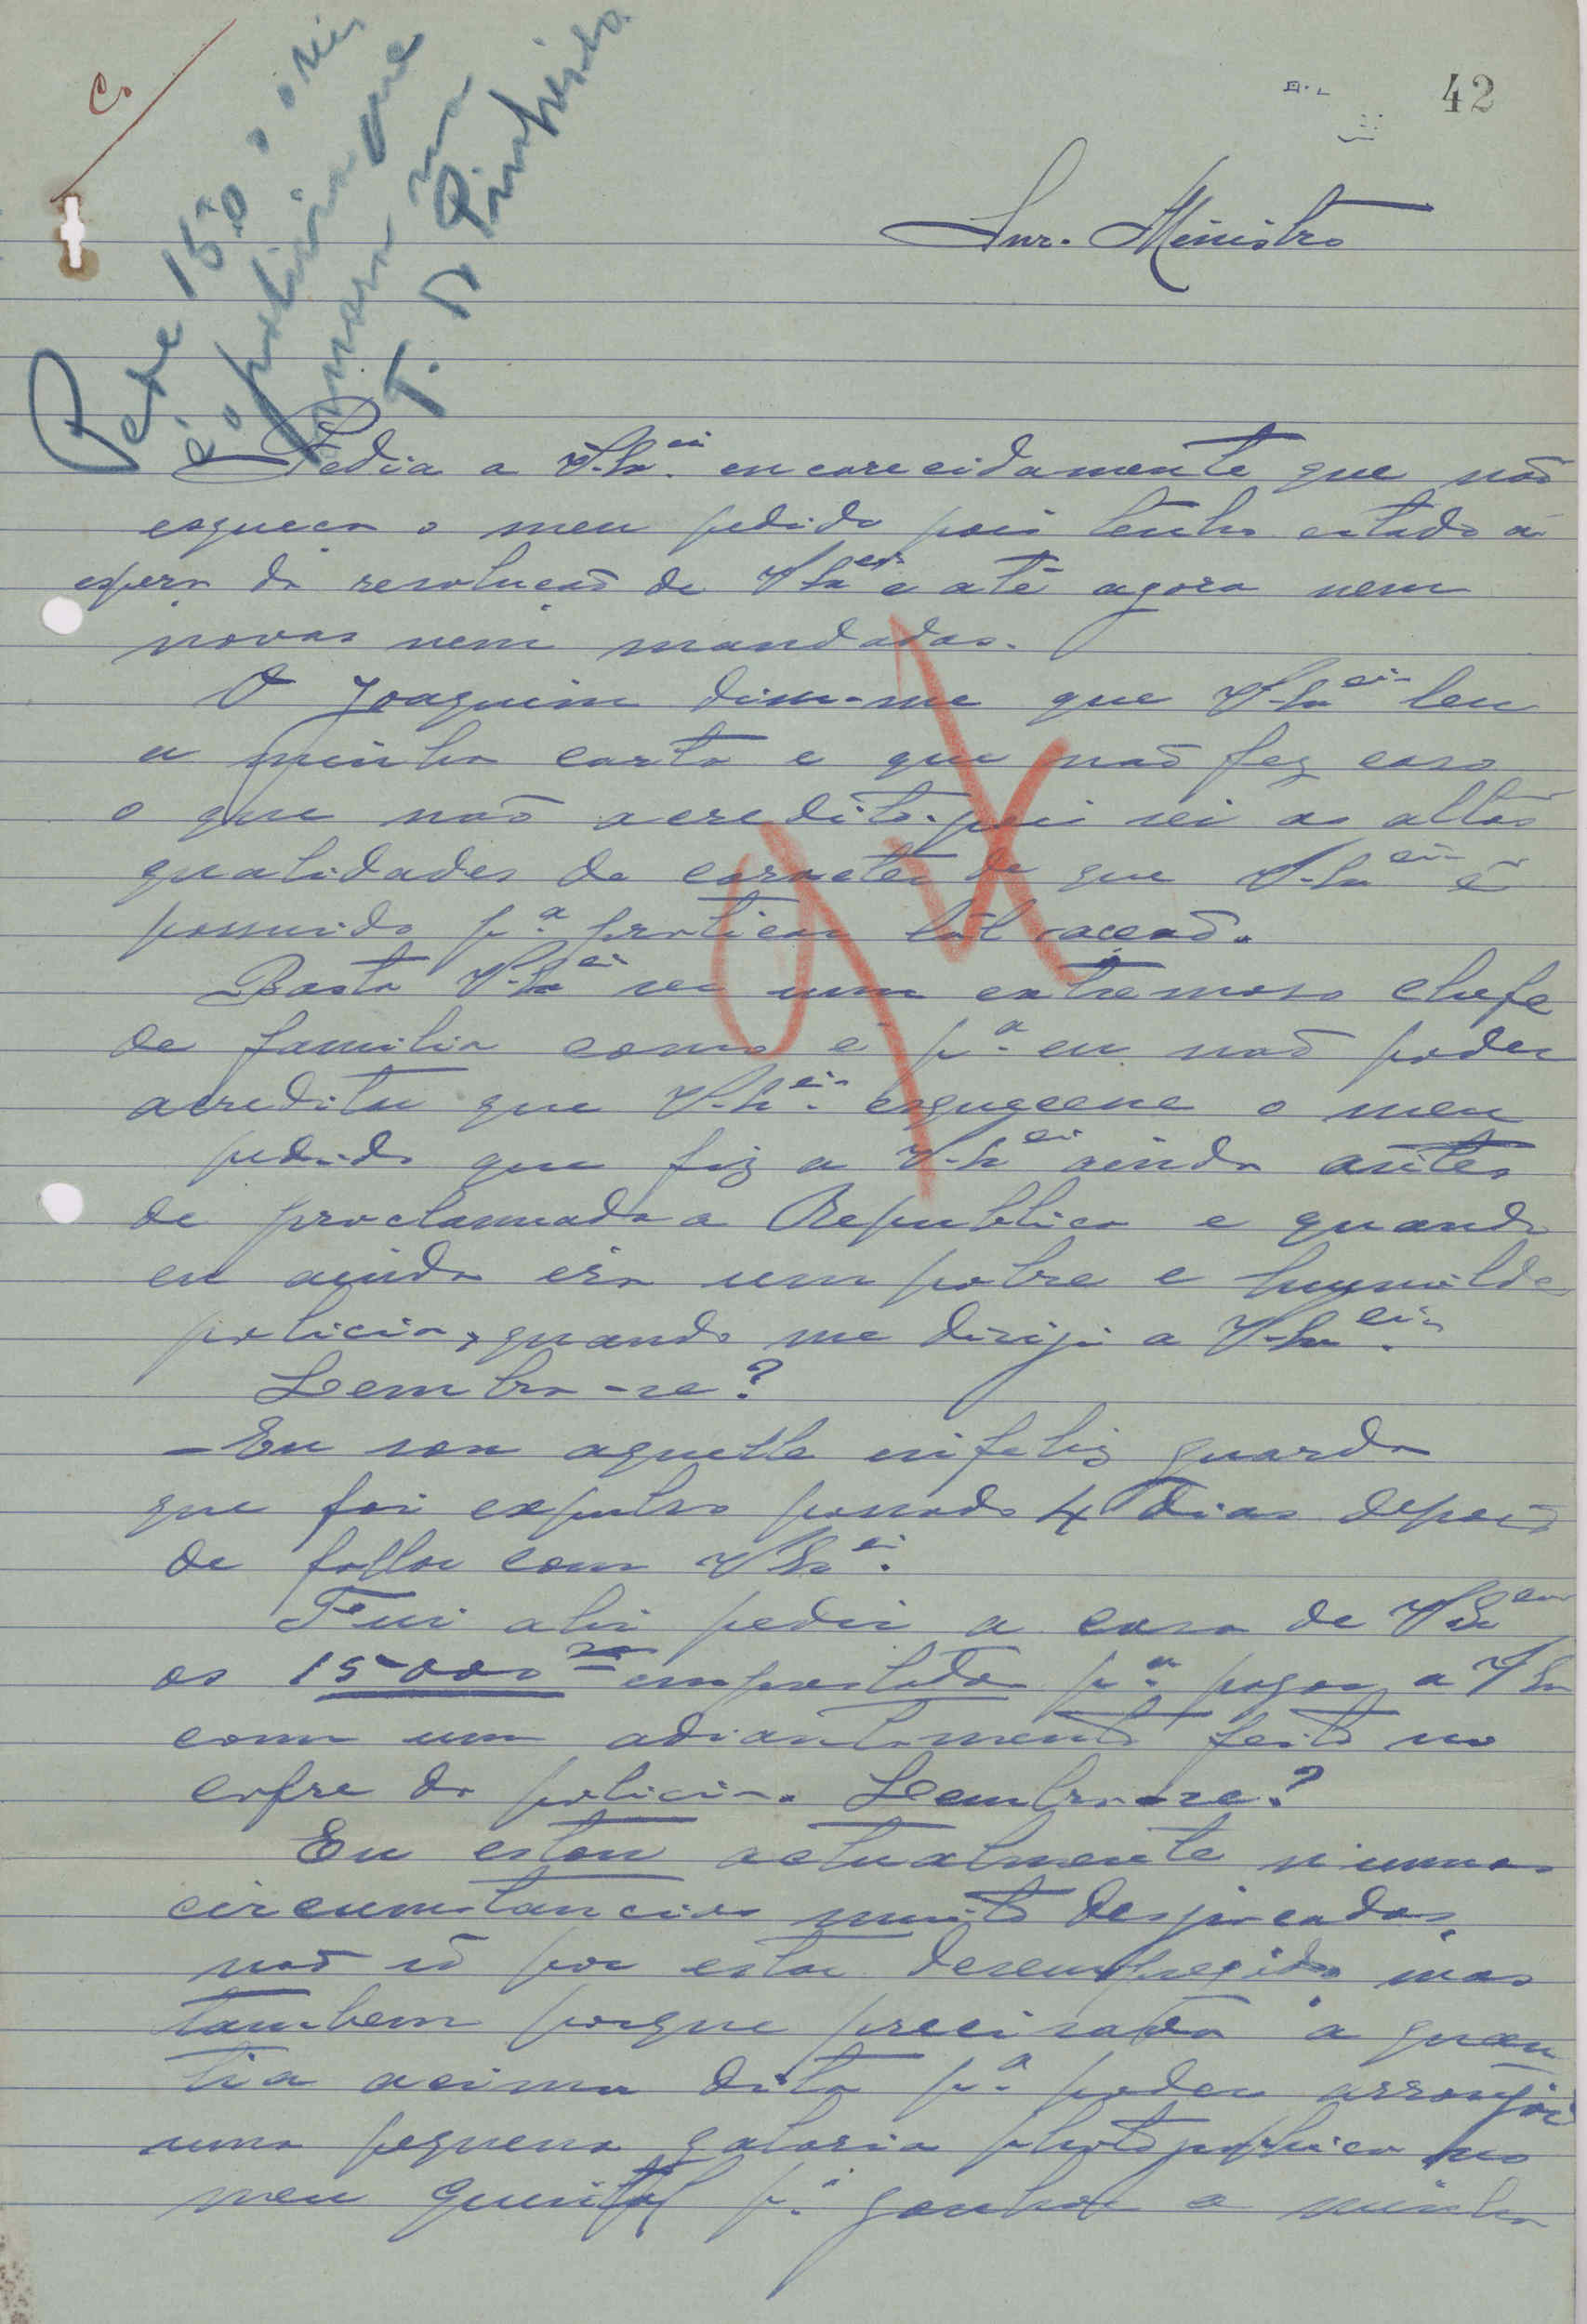 42
C.
Pede 15000 reis
é o policia que
mora na
T. do Pinheiro.
Snr. Ministro
Pedia a V. Ex.cia encarecidamente que não
esqueça o meu pedido pois tenho estado á
espera da resolucaõ de V Ex.cia e até agora nem
novas nem mandados.
O Joaquim disse-me que V. Ex.cia leu
a minha carta e que naõ fez caso
o que naõ acredito. pois sei as altas
qualidades de caracter de que V. Ex.cia é
possuido p.a praticar tal accaõ.
Basta V. Ex.cia ser um extremoso chefe
de familia como é p.a eu naõ poder
acreditar que V. Ex.cia esquecesse o meu
pedido que fiz a V. Ex.cia ainda antes
de proclamada a Republica e quando
eu ainda era um pobre e humilde
policia, quando me dirigi a V. Ex.cia.
Lembra-se?
- Eu sou aquelle infeliz guarda
que foi expulso passado 4 dias depois
de fallar com V Ex.cia.
Fui ahi pedir a casa de V Ex.cia
os 15000 rs emprestados p.a pagar a
com um adiantamento feito no
cofre da policia. Lembra-se?
Eu estou actualmente n'umas
circumstancias muito desgraçadas,
naõ só por estar desempregado mas
tambem porque precisava a quan
tia acima dita p.a poder arranjar
uma pequena galaria photographica no
meu quintal p.a ganhar a minha